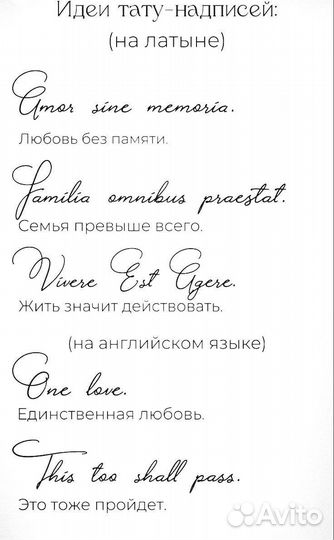 Идеи тату-надписей:
(на латыне)
Amor sine memoria.
Любовь без памяти.
Familia omnibus praestat.
Семья превыше всего.
Vivere Est Agere.
Жить значит действовать.
(на английском языке)
One love.
Единственная любовь.
This too shall pass.
Это тоже пройдет.
Avito